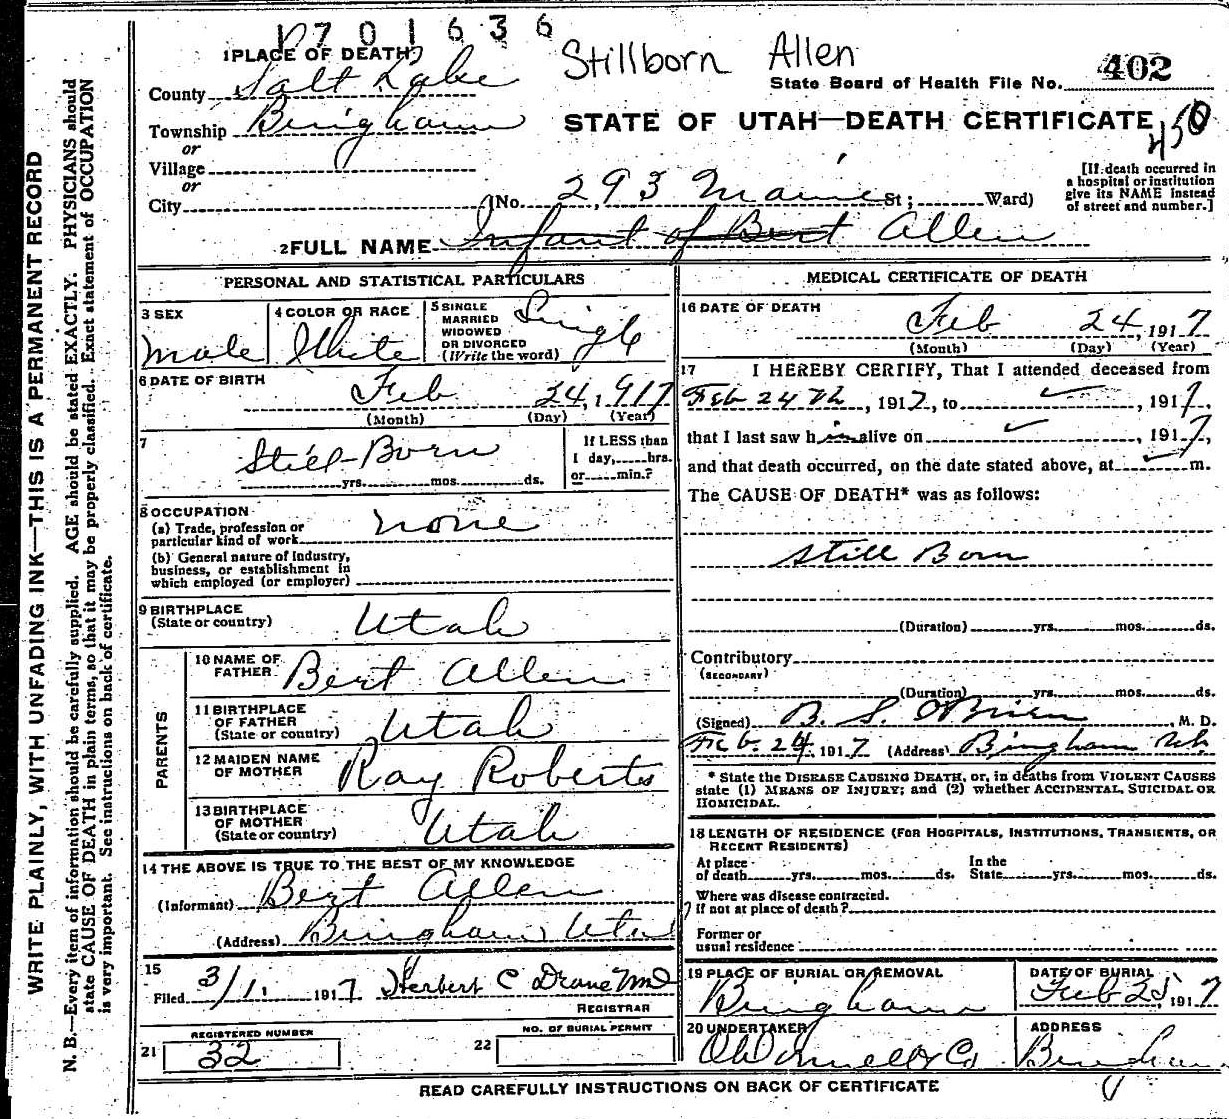 1701636
Stillborn Allen
1 PLACE OF DEATH
County Salt Lake
State Board of Health File No. 402
Township Bingham
STATE OF UTAH—DEATH CERTIFICATE
450
or
Village
or
City (No. 293 Main St; Ward)
[If death occurred in a hospital or institution give its NAME instead of street and number.]
2 FULL NAME Infant of Bert Allen
PERSONAL AND STATISTICAL PARTICULARS
3 SEX
Male
4 COLOR OR RACE
White
5 SINGLE
MARRIED
WIDOWED
OR DIVORCED
(Write the word)
Single
6 DATE OF BIRTH
Feb 24, 1917
(Month) (Day) (Year)
7
Still-Born
yrs. mos. ds.
If LESS than
1 day, hrs.
or min.?
8 OCCUPATION
(a) Trade, profession or
particular kind of work
none
(b) General nature of Industry,
business, or establishment in
which employed (or employer)
9 BIRTHPLACE
(State or country)
Utah
PARENTS
10 NAME OF
FATHER
Bert Allen
11 BIRTHPLACE
OF FATHER
(State or country)
Utah
12 MAIDEN NAME
OF MOTHER
Ray Roberts
13 BIRTHPLACE
OF MOTHER
(State or country)
Utah
14 THE ABOVE IS TRUE TO THE BEST OF MY KNOWLEDGE
(Informant) Bert Allen
(Address) Bingham Utah
15
Filed 3/1, 1917 Herbert C Drane MD
REGISTRAR
REGISTERED NUMBER
21 32
NO. OF BURIAL PERMIT
22
MEDICAL CERTIFICATE OF DEATH
16 DATE OF DEATH
Feb 24, 1917
(Month) (Day) (Year)
17 I HEREBY CERTIFY, That I attended deceased from
Feb 24th, 1917, to , 1917,
that I last saw him alive on , 1917,
and that death occurred, on the date stated above, at m.
The CAUSE OF DEATH* was as follows:
Still Born
(Duration) yrs. mos. ds.
Contributory
(SECONDARY)
(Duration) yrs. mos. ds.
(Signed) B. S. O'Brien, M. D.
Feb. 24, 1917 (Address) Bingham Ut
* State the DISEASE CAUSING DEATH, or, in deaths from VIOLENT CAUSES
state (1) MEANS OF INJURY; and (2) whether ACCIDENTAL, SUICIDAL OR
HOMICIDAL.
18 LENGTH OF RESIDENCE (FOR HOSPITALS, INSTITUTIONS, TRANSIENTS, OR
RECENT RESIDENTS)
At place
of death yrs. mos. ds.
In the
State yrs. mos. ds.
Where was disease contracted.
If not at place of death?
Former or
usual residence
19 PLACE OF BURIAL OR REMOVAL
Bingham
DATE OF BURIAL
Feb 25, 1917
20 UNDERTAKER
O'Donnell & Co
ADDRESS
Bingham
READ CAREFULLY INSTRUCTIONS ON BACK OF CERTIFICATE
WRITE PLAINLY, WITH UNFADING INK—THIS IS A PERMANENT RECORD
N. B.—Every item of information should be carefully supplied. AGE should be stated EXACTLY. PHYSICIANS should
state CAUSE OF DEATH in plain terms, so that it may be properly classified. Exact statement of OCCUPATION
is very important. See instructions on back of certificate.